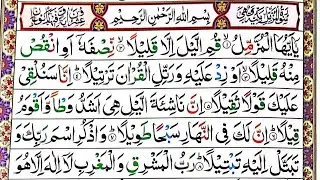 بِسْمِ اللّٰهِ الرَّحْمٰنِ الرَّحِيْمِ
يٰۤاَيُّهَا الْمُزَّمِّلُ ۙ قُمِ الَّيْلَ اِلَّا قَلِيْلًا ۙ نِّصْفَهٗۤ اَوِ انْقُصْ
مِنْهُ قَلِيْلًا ۙ اَوْ زِدْ عَلَيْهِ وَرَتِّلِ الْقُرْاٰنَ تَرْتِيْلًا ؕ اِنَّا سَنُلْقِيْ
عَلَيْكَ قَوْلًا ثَقِيْلًا ۝ اِنَّ نَاشِئَةَ الَّيْلِ هِيَ اَشَدُّ وَطْاً وَّاَقْوَمُ
قِيْلًا ؕ اِنَّ لَكَ فِي النَّهَارِ سَبْحًا طَوِيْلًا ؕ وَاذْكُرِ اسْمَ رَبِّكَ وَ
تَبَتَّلْ اِلَيْهِ تَبْتِيْلًا ؕ رَبُّ الْمَشْرِقِ وَالْمَغْرِبِ لَاۤ اِلٰهَ اِلَّا هُوَ